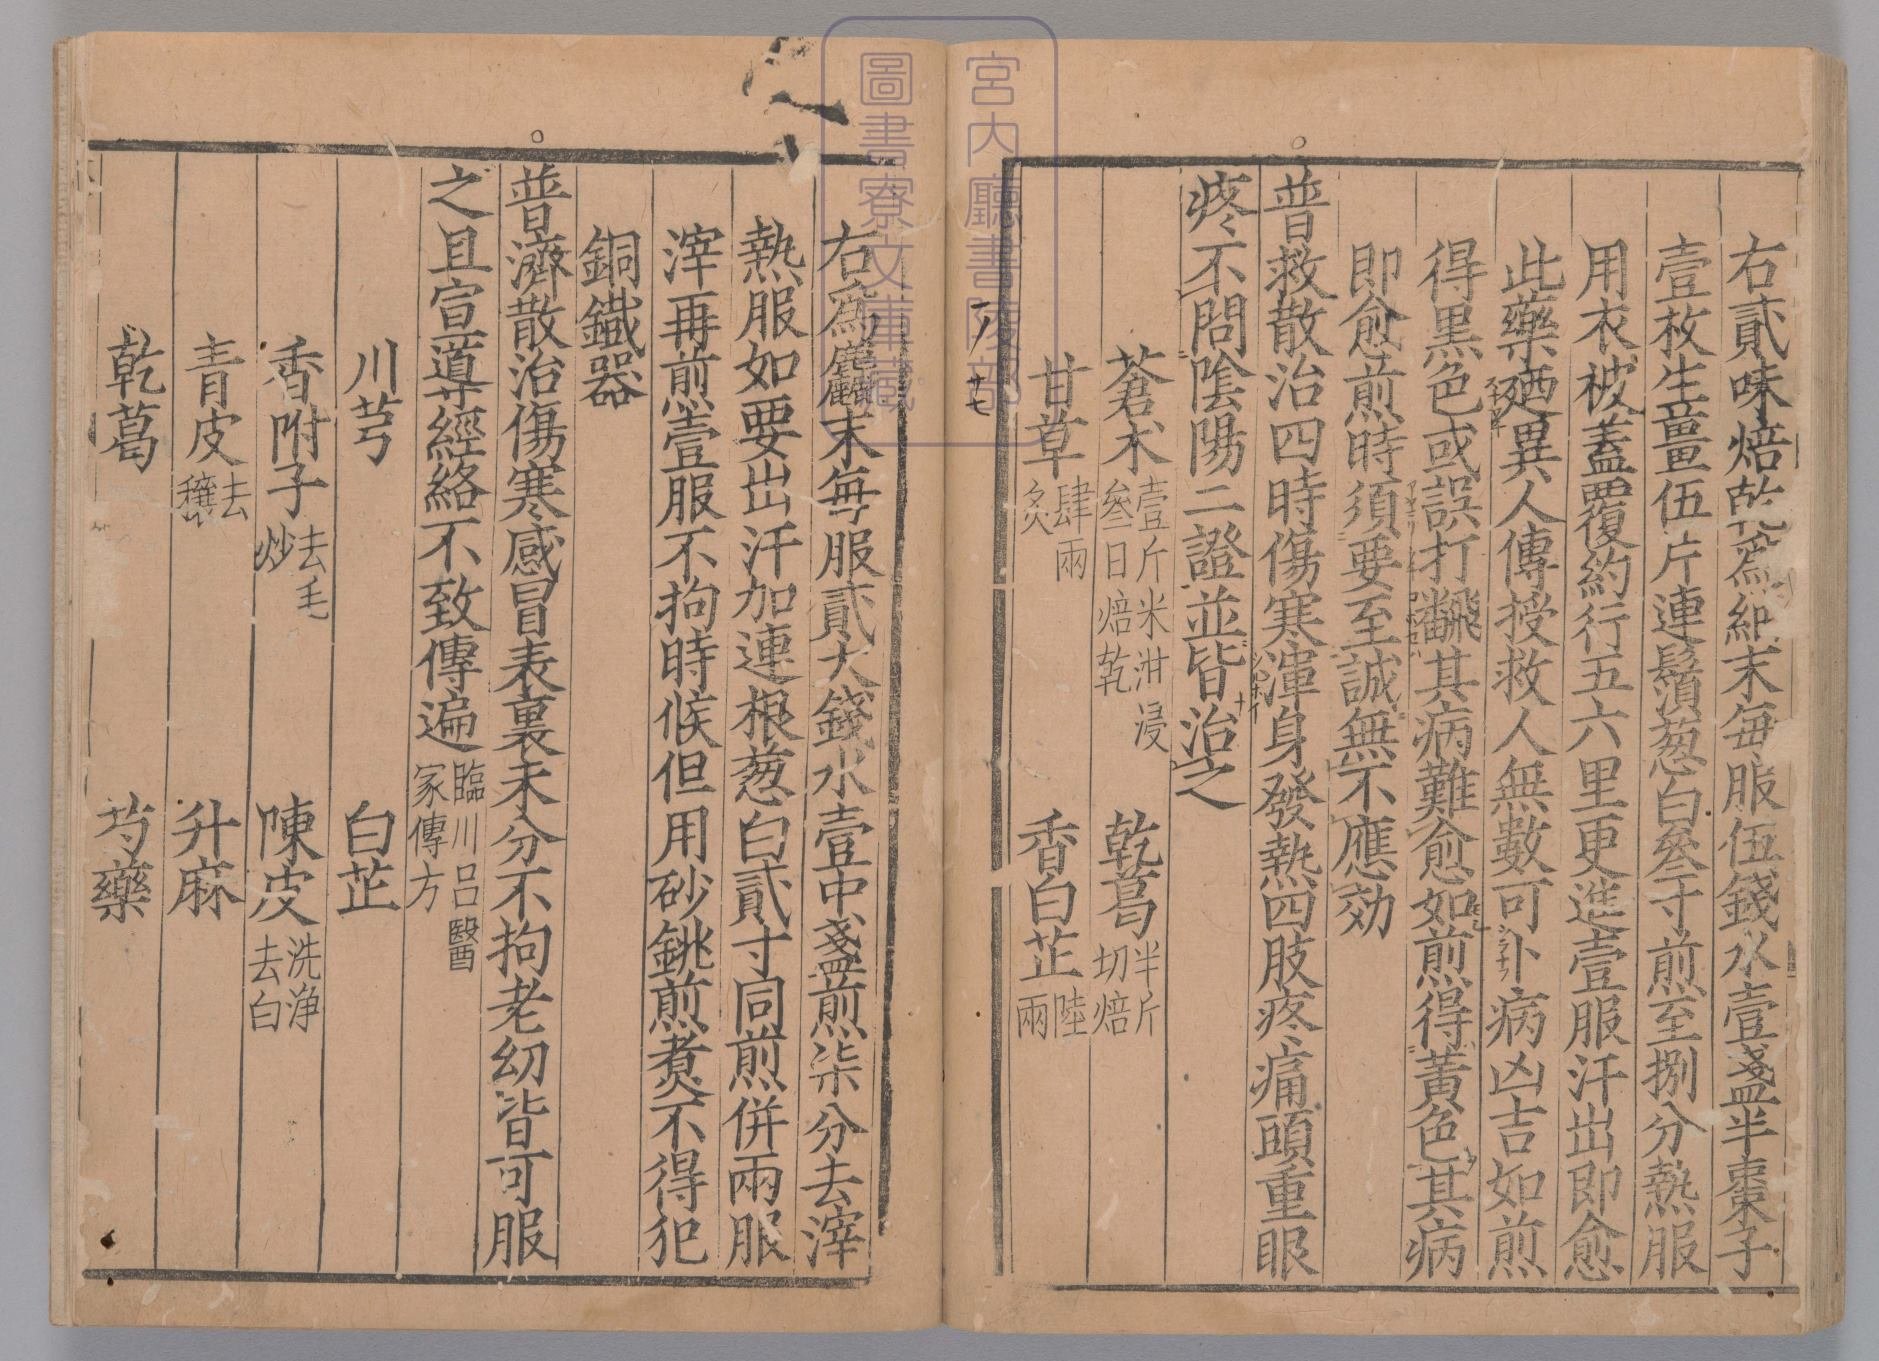 右貳味焙乾爲細末每服伍錢水壹盞半棗子
壹枚生薑伍片連鬚葱白叄寸煎至捌分熱服
用衣被蓋覆約行五六里更進壹服汗出即愈
此藥廼異人傳授救人無數可卜病凶吉如煎
得黑色或誤打飜其病難愈如煎得黃色其病
即愈煎時須要至誠無不應効
普救散治四時傷寒渾身發熱四肢疼痛頭重眼
疼不問陰陽二證並皆治之
蒼朮壹斤米泔浸叄日焙乾 乾葛半斤切焙
甘草肆兩炙 香白芷陸兩
十七
右爲麤末每服貳大錢水壹中盞煎柒分去滓
熱服如要出汗加連根葱白貳寸同煎併兩服
滓再煎壹服不拘時候但用砂銚煎煮不得犯
銅鐵器
普濟散治傷寒感冒表裏未分不拘老幼皆可服
之且宣導經絡不致傳遍臨川呂醫家傳方
川芎 白芷
香附子去毛炒 陳皮洗淨去白
青皮去穰 升麻
乾葛 芍藥
宮内廳書陵部
圖書寮文庫藏